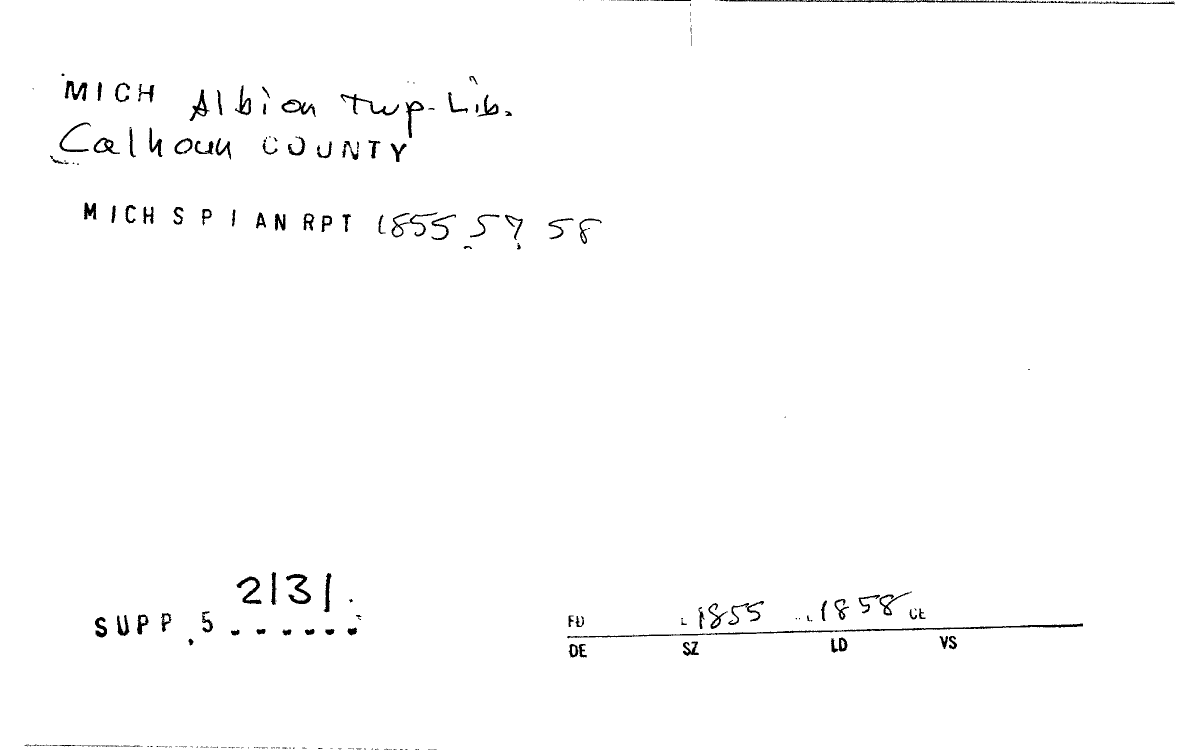 MICH Albion Twp. Lib.
Calhoun COUNTY
MICH S P I AN RPT 1855, 57, 58
2131.
SUPP, 5 ------
FD 1855 1858 CE
DE SZ LD VS